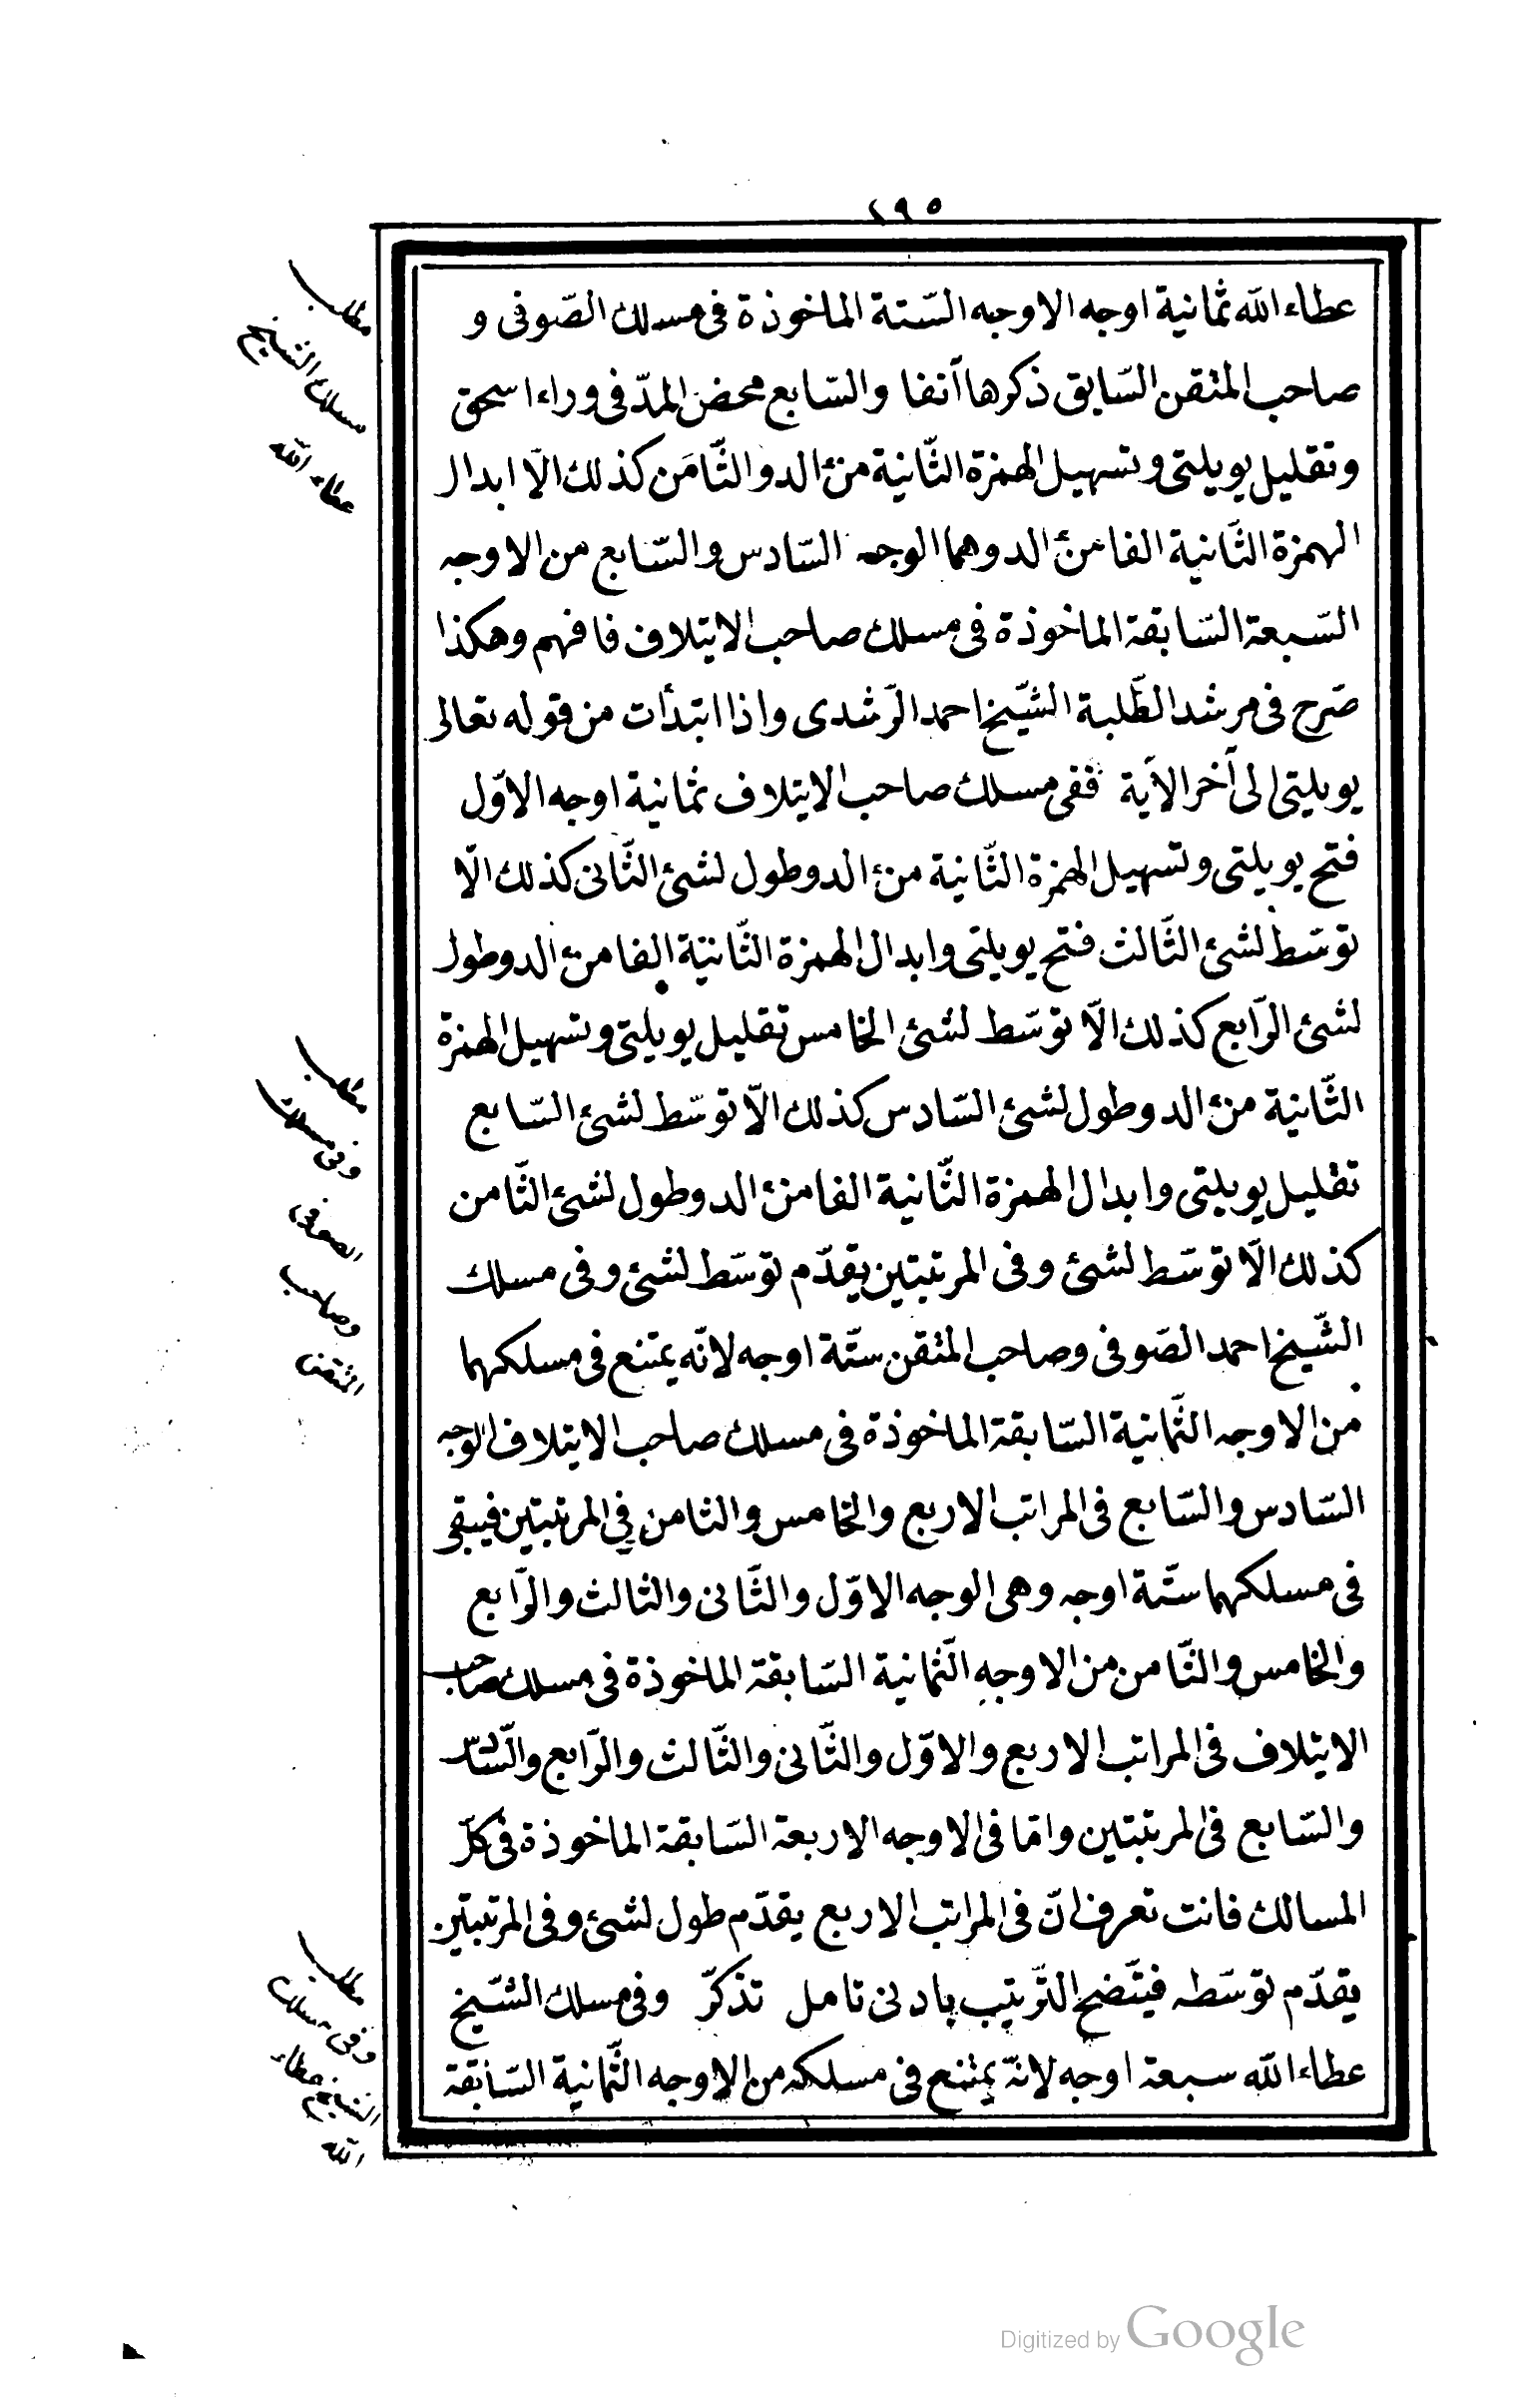 ٢٩٥
عطاء الله ثمانية اوجه الاوجه الستة الماخوذة فى مسلك الصّوفى و
صاحب المتقن السّابق ذكرها آنفا والسّابع محض المدّ فى وراء اسحق
وتقليل يويلتى وتسهيل الهمزة الثّانية من ءالد والثّامن كذلك الّا ابدال
الهمزة الثّانية الفا من ءالد وهما الوجه السّادس والسّابع من الاوجه
السّبعة السّابقة الماخوذة فى مسلك صاحب الايتلاف فافهم وهكذا
صّرح فى مرشد الطّلبة الشّيخ احمد الرّشدى واذا ابتدأت من قوله تعالى
يويلتى الى آخر الآية ففى مسلك صاحب الايتلاف ثمانية اوجه الاوّل
فتح يويلتى وتسهيل الهمزة الثّانية من ءالد وطول لشئ الثّانى كذلك الّا
توسّط لشئ الثّالث فتح يويلتى وابدال الهمزة الثّانية الفا من ءالد وطول
لشئ الرّابع كذلك الّا توسّط لشئ الخامس تقليل يويلتى وتسهيل الهمزة
الثّانية من ءالد وطول لشئ السّادس كذلك الّا توسّط لشئ السّابع
تقليل يويلتى وابدال الهمزة الثّانية الفا من ءالد وطول لشئ الثّامن
كذلك الّا توسّط لشئ وفى المرتبتين يقدّم توسّط لشئ وفى مسلك
الشّيخ احمد الصّوفى وصاحب المتقن ستّة اوجه لانّه يمتنع فى مسلكهما
من الاوجه الثّمانية السّابقة الماخوذة فى مسلك صاحب الايتلاف الوجه
السّادس والسّابع فى المراتب الاربع والخامس والثامن فى المرتبتين فيبقى
فى مسلكهما ستّة اوجه وهى الوجه الاوّل والثّانى والثالث والرّابع
والخامس والثّامن من الاوجه الثّمانية السّابقة الماخوذة فى مسلك صاحب
الايتلاف فى المراتب الاربع والاوّل والثّانى والثّالث والرّابع والسّادس
والسّابع فى المرتبتين وامّا فى الاوجه الاربعة السّابقة الماخوذة فى كلّ
المسالك فانت تعرف انّ فى المراتب الاربع يقدّم طول لشئ وفى المرتبتين
يقدّم توسّطه فيتّضح التّرتيب بادنى تامل تذكّر وفى مسلك الشّيخ
عطاء الله سبعة اوجه لانّه يمتنع فى مسلكه من الاوجه الثّمانية السّابقة
مطلب
مسلك الشيخ
عطاء الله
مطلب
وفى مسلك
الصوفى
وصاحب
المتقن
مطلب
وفى مسلك
الشيخ عطاء
الله
Digitized by Google